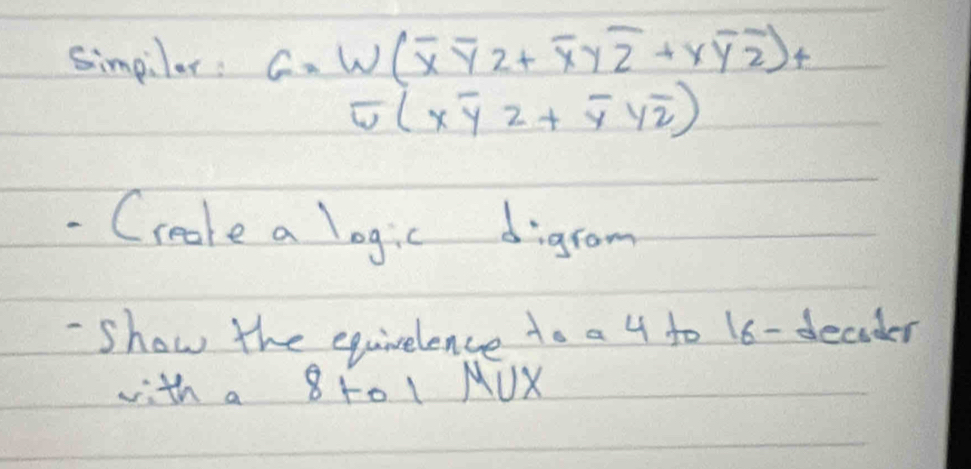 Simpiler: G = W(x̅ y̅ z + x̅ y z̅ + x y̅ z̅) +
w̅(x y̅ z + y̅ y z̅)
- Create a logic digram
- Show the equivelence to a 4 to 16-decoder
with a 8 to 1 MUX